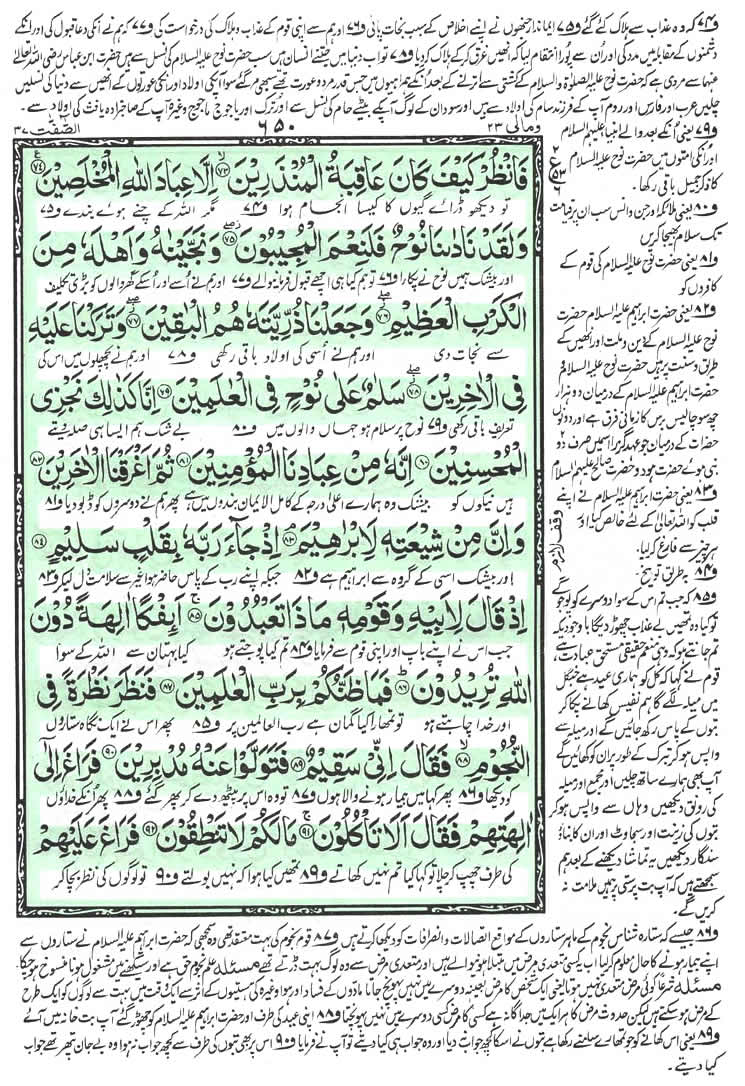 ف۷۴ کہ وہ عذاب سے ہلاک کئے گئے ف۷۵ ایماندار جنھوں نے اپنے اخلاص کے سبب نجات پائی ف۷۶ اور ہم سے اپنی قوم کے عذاب و ہلاک کی درخواست کی ف۷۷ کہ ہم نے انکی دعا قبول کی اور انکے
دشمنوں کے مقابلہ میں مدد کی اور اُن سے پورا انتقام لیا کہ انھیں غرق کر کے ہلاک کر دیا ف۷۸ تو اب دنیا میں جتنے انسان ہیں سب حضرت نوح علیہ السلام کی نسل سے ہیں حضرت ابن عباس رضی اللہ تعالیٰ
عنہما سے مروی ہے کہ حضرت نوح علیہ الصلوٰۃ والسلام کے کشتی سے اترنے کے بعد انکے ہمراہیوں میں جس قدر مرد و عورت تھے سبھی مر گئے سوا آپکی اولاد اور انکی عورتوں کے انھیں سے دنیا کی نسلیں
چلیں عرب اور فارس اور روم آپ کے فرزند سام کی اولاد سے ہیں اور سودان کے لوگ آپکے بیٹے حام کی نسل سے اور ترک اور یاجوج ماجوج وغیرہ آپ کے صاحبزادہ یافث کی اولاد سے۔
ومالی ۲۳
۶۵۰
الصّٰفّٰت ۳۷
فَانْظُرْ كَيْفَ كَانَ عَاقِبَةُ الْمُنْذَرِيْنَ ۷۳ اِلَّا عِبَادَ اللّٰهِ الْمُخْلَصِيْنَ ۷۴
تو دیکھو ڈرائے گیوں کا کیسا انجام ہوا ف۷۴ مگر اللہ کے چنے ہوئے بندے ف۷۵
وَلَقَدْ نَادٰىنَا نُوْحٌ فَلَنِعْمَ الْمُجِيْبُوْنَ ۷۵ وَنَجَّيْنٰهُ وَاَهْلَهٗ مِنَ
اور بیشک ہمیں نوح نے پکارا ف۷۶ تو ہم کیا ہی اچھے قبول فرمانیوالے ف۷۷ اور ہم نے اُسے اور اُسکے گھر والوں کو بڑی تکلیف
الْكَرْبِ الْعَظِيْمِ ۷۶ وَجَعَلْنَا ذُرِّيَّتَهٗ هُمُ الْبٰقِيْنَ ۷۷ وَتَرَكْنَا عَلَيْهِ
سے نجات دی اور ہم نے اُسی کی اولاد باقی رکھی ف۷۸ اور ہم نے پچھلوں میں اس کی
فِى الْاٰخِرِيْنَ ۷۸ سَلٰمٌ عَلٰى نُوْحٍ فِى الْعٰلَمِيْنَ ۷۹ اِنَّا كَذٰلِكَ نَجْزِى
تعریف باقی رکھی ف۷۹ نوح پر سلام ہو جہاں والوں میں ف۸۰ بے شک ہم ایسا ہی صلہ دیتے
الْمُحْسِنِيْنَ ۸۰ اِنَّهٗ مِنْ عِبَادِنَا الْمُؤْمِنِيْنَ ۸۱ ثُمَّ اَغْرَقْنَا الْاٰخَرِيْنَ ۸۲
ہیں نیکوں کو بیشک وہ ہمارے اعلیٰ درجہ کے کامل الایمان بندوں میں ہے پھر ہم نے دوسروں کو ڈبو دیا ف۸۱
وَاِنَّ مِنْ شِيْعَتِهٖ لَاِبْرٰهِيْمَ ۸۳ اِذْ جَآءَ رَبَّهٗ بِقَلْبٍ سَلِيْمٍ ۸۴
اور بیشک اسی کے گروہ سے ابراہیم ہے ف۸۲ جبکہ اپنے رب کے پاس حاضر ہوا غیر سے سلامت دل لیکر ف۸۳
اِذْ قَالَ لِاَبِيْهِ وَقَوْمِهٖ مَاذَا تَعْبُدُوْنَ ۸۵ اَئِفْكًا اٰلِهَةً دُوْنَ
جب اس نے اپنے باپ اور اپنی قوم سے فرمایا ف۸۴ تم کیا پوجتے ہو کیا بہتان سے اللہ کے سوا
اللّٰهِ تُرِيْدُوْنَ ۸۶ فَمَا ظَنُّكُمْ بِرَبِّ الْعٰلَمِيْنَ ۸۷ فَنَظَرَ نَظْرَةً فِى
اور خدا چاہتے ہو تو تمہارا کیا گمان ہے رب العالمین پر ف۸۵ پھر اس نے ایک نگاہ ستاروں
النُّجُوْمِ ۸۸ فَقَالَ اِنِّىْ سَقِيْمٌ ۸۹ فَتَوَلَّوْا عَنْهُ مُدْبِرِيْنَ ۹۰ فَرَاغَ اِلٰٓى
کو دیکھا ف۸۶ پھر کہا میں بیمار ہونے والا ہوں ف۸۷ تو وہ اس پر پیٹھ دے کر پھر گئے ف۸۸ پھر انکے خداؤں
اٰلِهَتِهِمْ فَقَالَ اَلَا تَاْكُلُوْنَ ۹۱ مَا لَكُمْ لَا تَنْطِقُوْنَ ۹۲ فَرَاغَ عَلَيْهِمْ
کی طرف چھپ کر چلا تو کہا کیا تم نہیں کھاتے ف۸۹ تمھیں کیا ہوا کہ نہیں بولتے ف۹۰ تو لوگوں کی نظر بچا کر
ف۷۹ یعنی انکے بعد والے انبیا علیہم السلام
اور انکی امتوں میں حضرت نوح علیہ السلام
کا ذکر جمیل باقی رکھا۔
ف۸۰ یعنی ملائکہ اور جن و انس سب ان پر قیامت
تک سلام بھیجا کریں
ف۸۱ یعنی حضرت نوح علیہ السلام کی قوم کے
کافروں کو
ف۸۲ یعنی حضرت ابراہیم علیہ السلام حضرت
نوح علیہ السلام کے دین و ملت اور انھیں کے
طریق و سنت پر ہیں حضرت نوح علیہ السلام و
حضرت ابراہیم علیہ السلام کے درمیان دو ہزار
چھ سو چالیس برس کا زمانی فرق ہے اور دونوں
حضرات کے درمیان جو عہد گزرا اسمیں صرف دو
نبی ہوئے حضرت ہود و حضرت صالح علیہما السلام
ف۸۳ یعنی حضرت ابراہیم علیہ السلام نے اپنے
قلب کو اللہ تعالیٰ کے لئے خالص کیا اور
ہر چیز سے فارغ کر لیا۔
وقف لازم
ف۸۴ بہ طریق توبیخ۔
ف۸۵ کہ جب تم اس کے سوا دوسرے کو پوجو گے
تو کیا وہ تمھیں بے عذاب چھوڑ دیگا باوجودیکہ
تم جانتے ہو کہ وہی منعم حقیقی مستحق عبادت ہے
قوم نے کہا کہ کل کو ہماری عید ہے جنگل
میں میلہ لگے گا ہم نفیس کھانے پکا کر
بتوں کے پاس رکھ جائیں گے اور میلہ سے
واپس ہو کر تبرک کے طور پر ان کو کھائیں گے
آپ بھی ہمارے ساتھ چلیں اور مجمع اور میلہ
کی رونق دیکھیں وہاں سے واپس ہو کر
بتوں کی زینت اور سجاوٹ اور ان کا بناؤ
سنگار دیکھیں یہ تماشا دیکھنے کے بعد ہم
سمجھتے ہیں کہ آپ بت پرستی پر ہمیں ملامت نہ
کریں گے۔
ف۸۶ جیسے کہ ستارہ شناس نجوم کے ماہر ستاروں کے مواقع اتصالات و انصرافات کو دیکھا کرتے ہیں ف۸۷ قوم نجوم کی بہت معتقد تھی وہ سمجھی کہ حضرت ابراہیم علیہ السلام نے ستاروں سے
اپنے بیمار ہونے کا حال معلوم کر لیا اب یہ کسی متعدی مرض میں مبتلا ہونے والے ہیں اور متعدی مرض سے وہ لوگ بہت ڈرتے تھے مسئلہ علم نجوم حق ہے اور سیکھنے میں مشغول ہونا منسوخ ہو چکا
مسئلہ شرعاً کوئی مرض متعدی نہیں ہوتا یعنی ایک شخص کا مرض بعینہ دوسرے میں نہیں پہونچ جاتا مادّوں کے فساد اور ہوا وغیرہ کی سمیتوں کے اثر سے ایک وقت میں بہت سے لوگوں کو ایک طرح کے
مرض ہو سکتے ہیں لیکن حدوث مرض کا ہر ایک میں جداگانہ ہے کسی کا مرض کسی دوسرے میں نہیں پہونچتا ف۸۸ اپنی عید کی طرف اور حضرت ابراہیم علیہ السلام کو چھوڑ گئے آپ بت خانہ میں آئے
ف۸۹ یعنی اس کھانے کو جو تمھارے سامنے رکھا ہے بتوں نے اسکا کچھ جواب نہ دیا اور وہ جواب ہی کیا دیتے تو آپ نے فرمایا ف۹۰ اس پر بھی بتوں کی طرف سے کچھ جواب نہ ہوا وہ بے جان پتھر تھے جواب
کیا دیتے۔